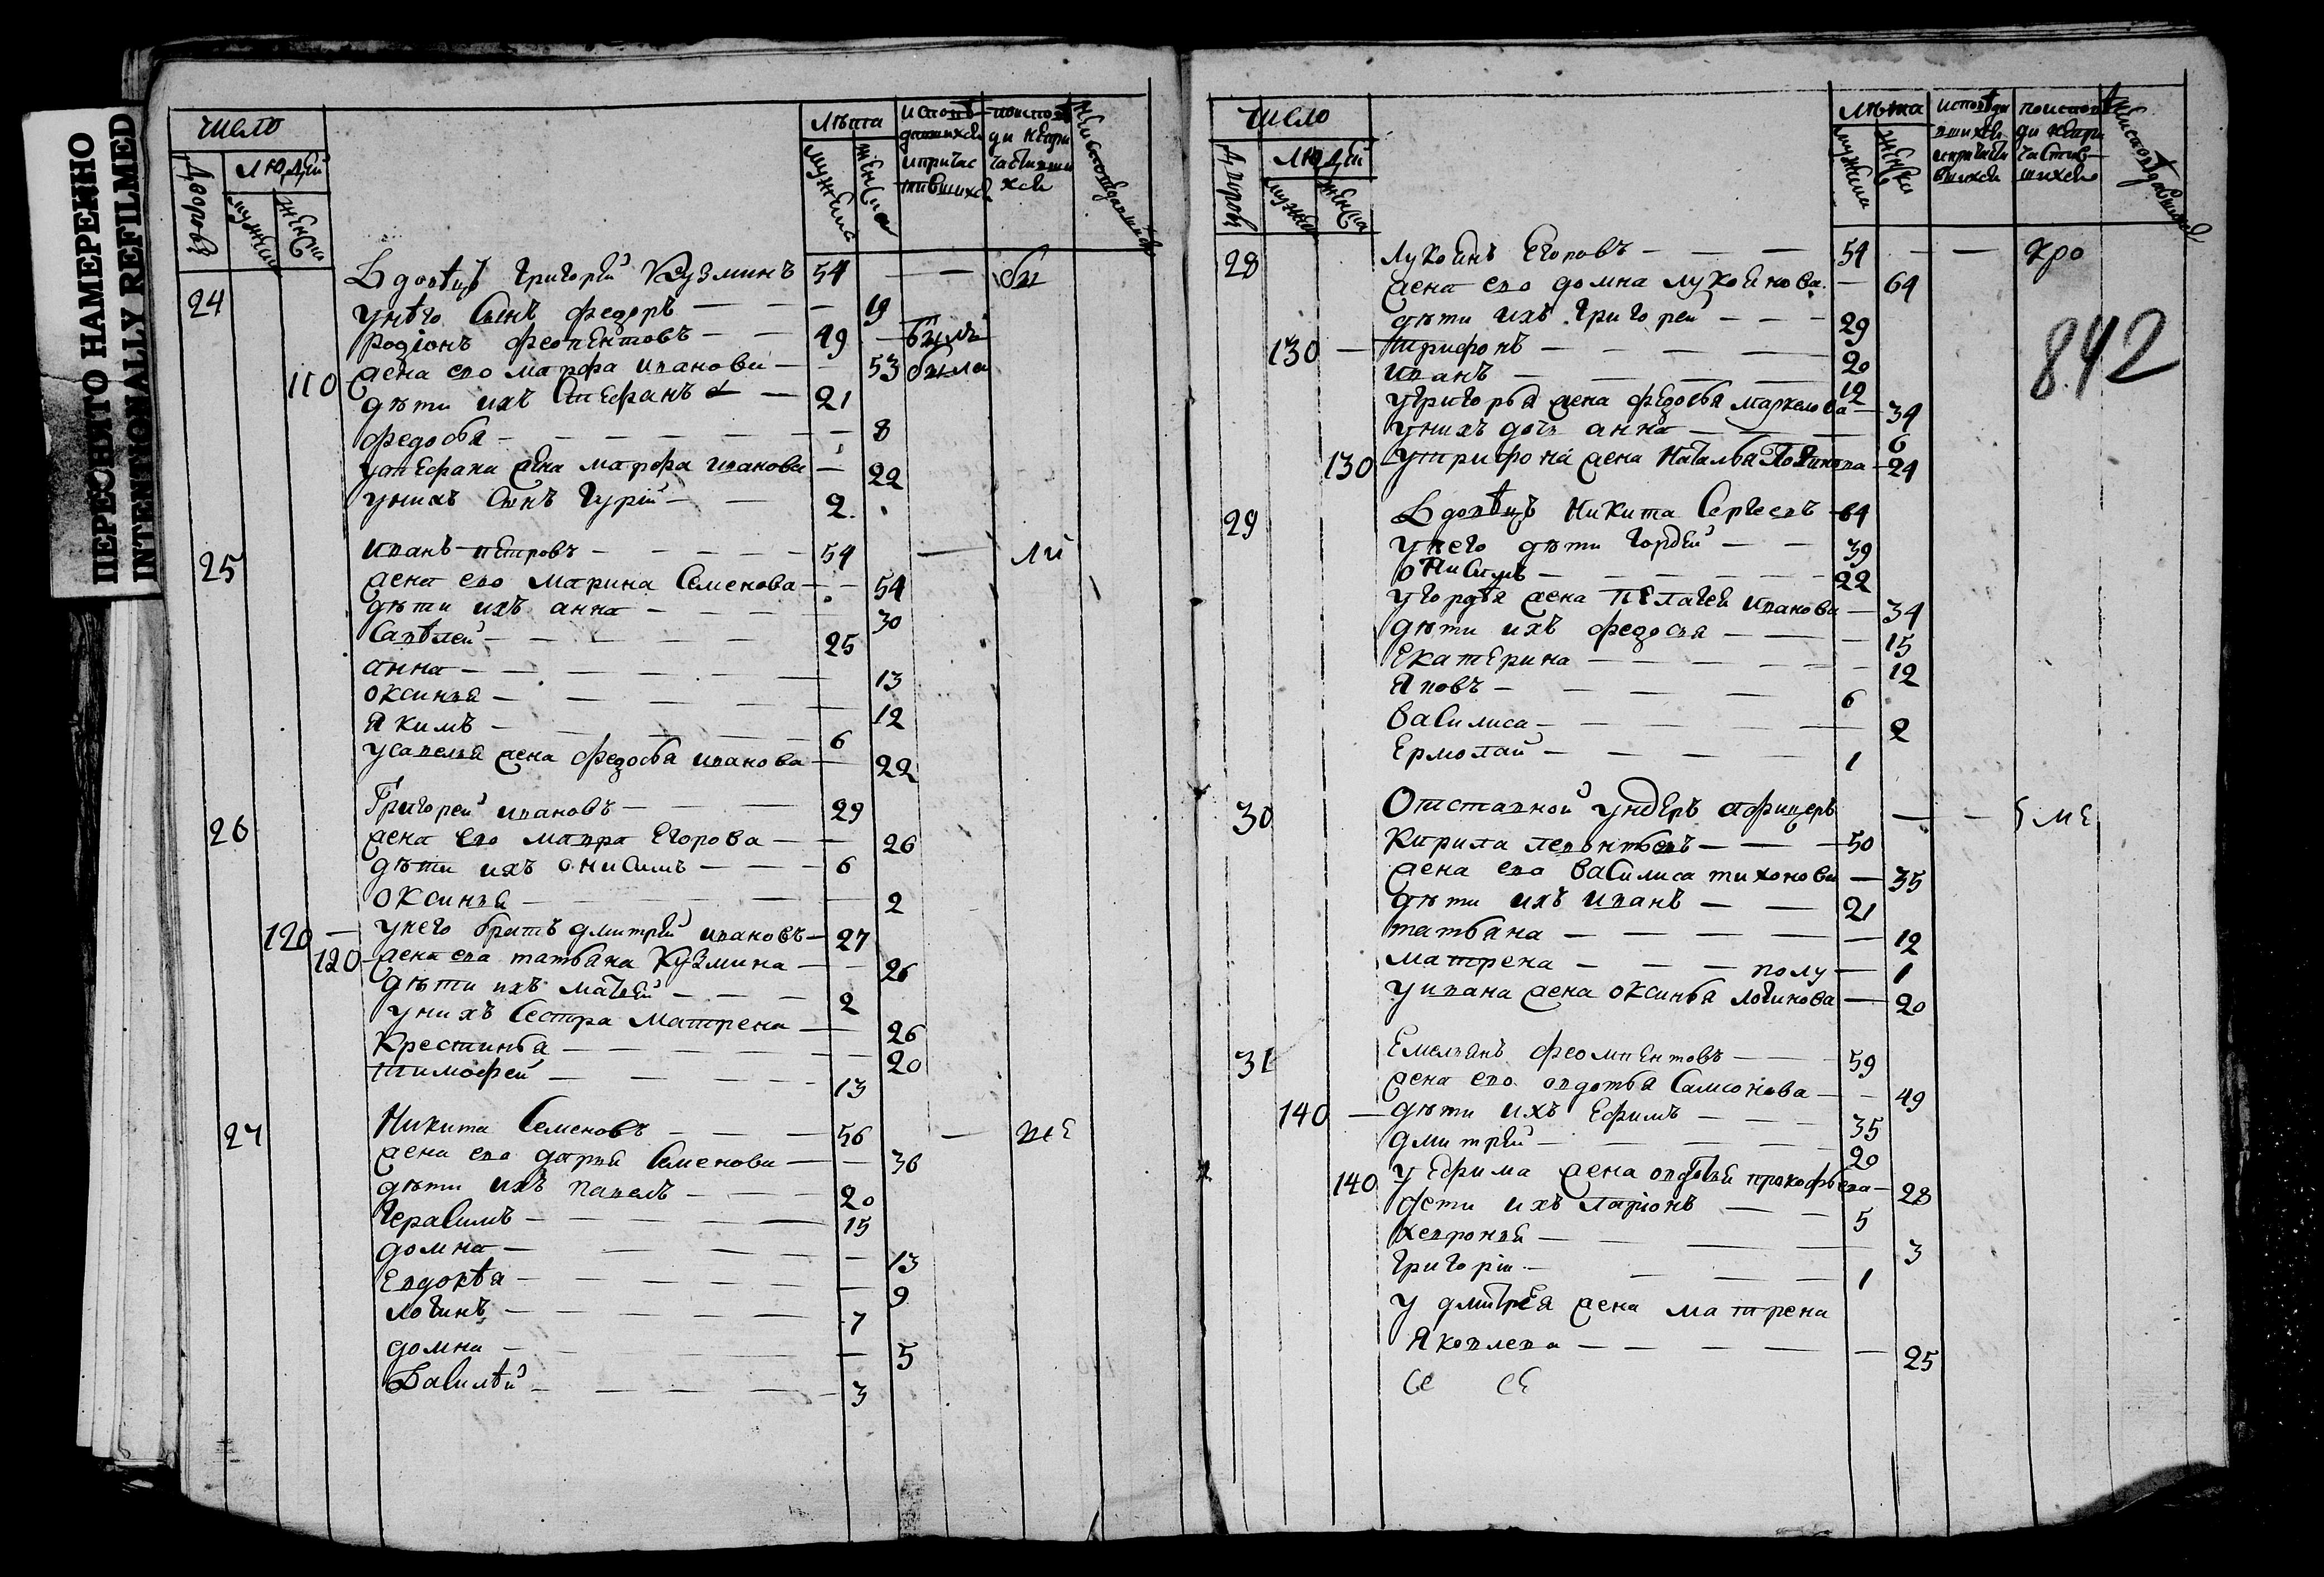 ПЕРЕСНЯТО НАМЕРЕННО
INTENTIONALLY REFILMED
Число
Дворовъ
Людей
мужеска
женска
Лѣта
мужеска
женска
24
Вдовецъ Григорей Кузминъ 54 — — бы
У него сынъ Федоръ — — — 19
Родіонъ Феопентовъ — — 49 — былъ
110 жена ево Марфа Иванова — — 53 была
дѣти ихъ Стефанъ — 21
Федосья — — — — — — 8
У Стефана жена Марфа Иванова — 22
У нихъ сынъ Гурій — — 2
25 Иванъ Петровъ — — — — 54 — ли
жена ево Марина Семенова — — 54
дѣти ихъ Анна — — — 30
Савѣлей — — — — 25
Анна — — — — — 13
Оксинья — — — — — 12
Якимъ — — — — 6
У Савелья жена Федосья Иванова — 22
26 Григорей Ивановъ — — — 29
жена ево Мавра Егорова — — 26
дѣти ихъ Онисимъ — — — 6
Оксинья — — — — — 2
120 — У него братъ Дмитрей Ивановъ — 27
120 — жена ева Татьяна Кузмина — — 26
дѣти ихъ Матвей — — — 2
У нихъ сестра Матрена — — 26
Крестинья — — — — — 20
Тимофей — — — — 13
27 Никита Семеновъ — — — 56 — же
жена ево Дарья Семенова — — 36
дѣти ихъ Павелъ — — — 20
Герасимъ — — — — 15
Домна — — — — — 13
Евдокѣя — — — — — 9
Логинъ — — — — 7
Домна — — — — — 5
Василѣй — — — — 3
Число
Дворовъ
Людей
мужеска
женска
Лѣта
мужеска
женска
842
28 Лукоянъ Егоровъ — — — 54 — — кро
жена ево Домна Лукоянова — 64
дѣти ихъ Григорей — — — 29
130 — Трифонъ — — — — 20
Иванъ — — — — 12
У Григорья жена Федосья Маркелова — 34
У нихъ дочь Анна — — — 6
130 У Трифона жена Наталья — 24
29 Вдовецъ Никита Сергеевъ — 64
У него дѣти Гордей — — 39
Онисимъ — — — — 22
У Гордья жена Пелагея Иванова — 34
дѣти ихъ Федосья — — — 15
Екатерина — — — — — 12
Яковъ — — — — 6
Василиса — — — — — 2
Ермолай — — — — 1
30 Отставной ундеръ афицеръ — — ме
Кирила Левонтьевъ — — — 50
жена ево Василиса Тихонова — 35
дѣти ихъ Иванъ — — 21
Татьяна — — — — — 12
Матрена — — — полу — 1
У Ивана жена Оксинья Логинова — 20
31 Емельянъ Феомпентовъ — — 59
жена ево Овдотья Самсонова — — 49
140 — дѣти ихъ Ефимъ — — — 35
Дмитрей — — — — 20
140 У Ефима жена Овдотья Прокофьева — 28
дети ихъ Ларіонъ — — 5
Хевронья — — — — 3
Григорій — — — — 1
У Дмитрея жена Матрена
Яковлева — — — — — 25